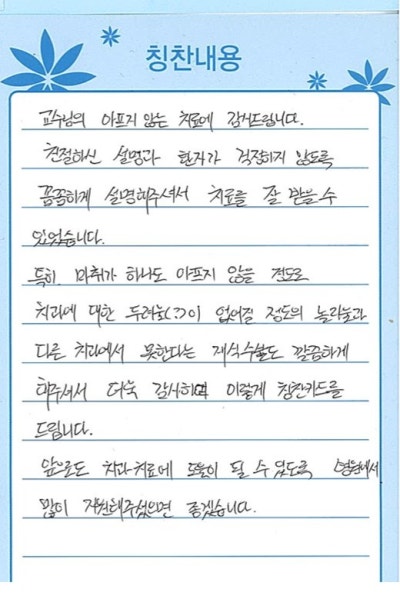 칭찬내용
교수님의 아프지 않는 치료에 감사드립니다.
친절하신 설명과 환자가 걱정하지 않도록
꼼꼼하게 설명해주셔서 치료를 잘 받을 수
있었습니다.
특히 마취가 하나도 아프지 않을 정도로
치과에 대한 두려움(??)이 없어질 정도의 놀라움과
다른 치과에서 못한다는 재식수술도 깔끔하게
해주셔서 더욱 감사하며 이렇게 칭찬카드를
드립니다.
앞으로도 치과치료에 도움이 될 수 있도록 병원에서
많이 지원해주셨으면 좋겠습니다.